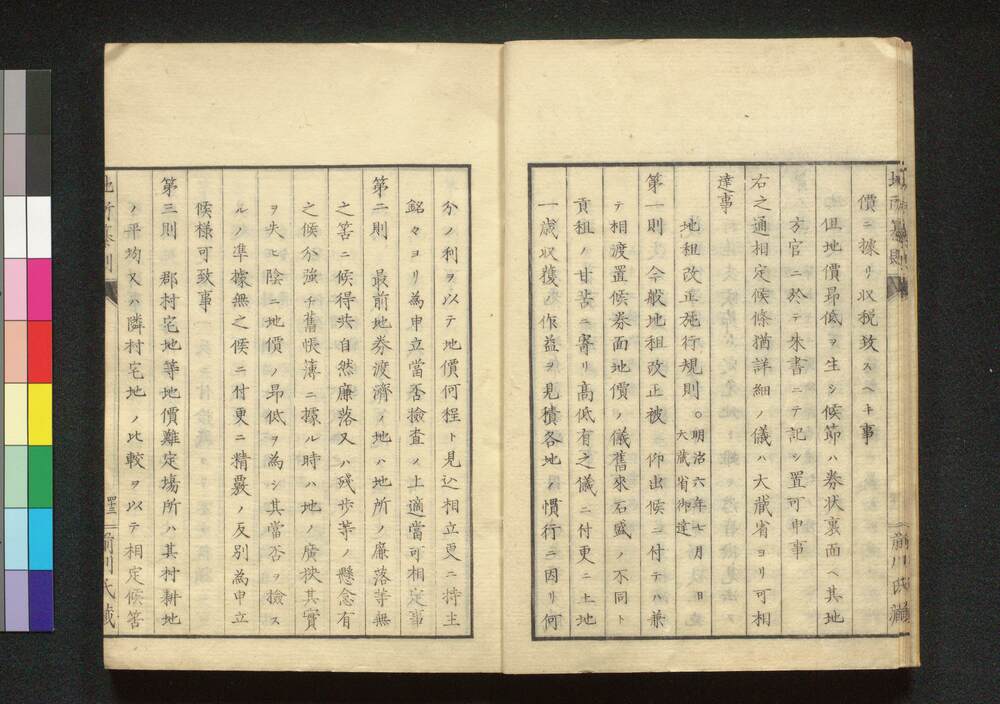 價ニ據リ収税致スヘキ事
但地價昻低ヲ生シ候節ハ券状裏面ヘ其地
方官ニ於テ朱書ニテ記シ置可申事
右之通相定候條猶詳細ノ儀ハ大蔵省ヨリ可相
達事
地租改正施行規則 ○明治六年七月 日
大蔵省御達
第一則 今般地租改正被 仰出候ニ付テハ兼
テ相渡置候券面地價ノ儀舊來石盛ノ不同ト
貢租ノ甘苦ニ寄リ高低有之儀ニ付更ニ土地
一歳収穫ノ作益ヲ見積各地ノ慣行ニ因リ何
分ノ利ヲ以テ地價何程ト見込相立更ニ持主
銘々ヨリ為申立當否撿査ノ上適當可相定事
第二則 最前地券渡濟ノ地ハ地所ノ廉落等無
之筈ニ候得共自然廉落又ハ残歩等ノ懸念有
之候分強チ舊帳簿ニ據ル時ハ地ノ廣狭其實
ヲ失ヒ陰ニ地價ノ昻低ヲ為シ其當否ヲ撿ス
ルノ準據無之候ニ付更ニ精覈ノ反別為申立
候様可致事
第三則 郡村宅地等地價難定場所ハ其村耕地
ノ平均又ハ隣村宅地ノ比較ヲ以テ相定候筈
前川氏蔵